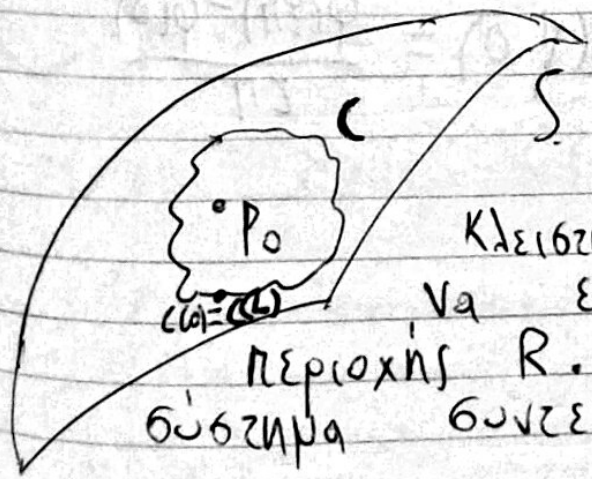 C
S.
P₀
Κλειστ
C(0)=C(L)
να ε
περιοχής R.
σύστημα συντε